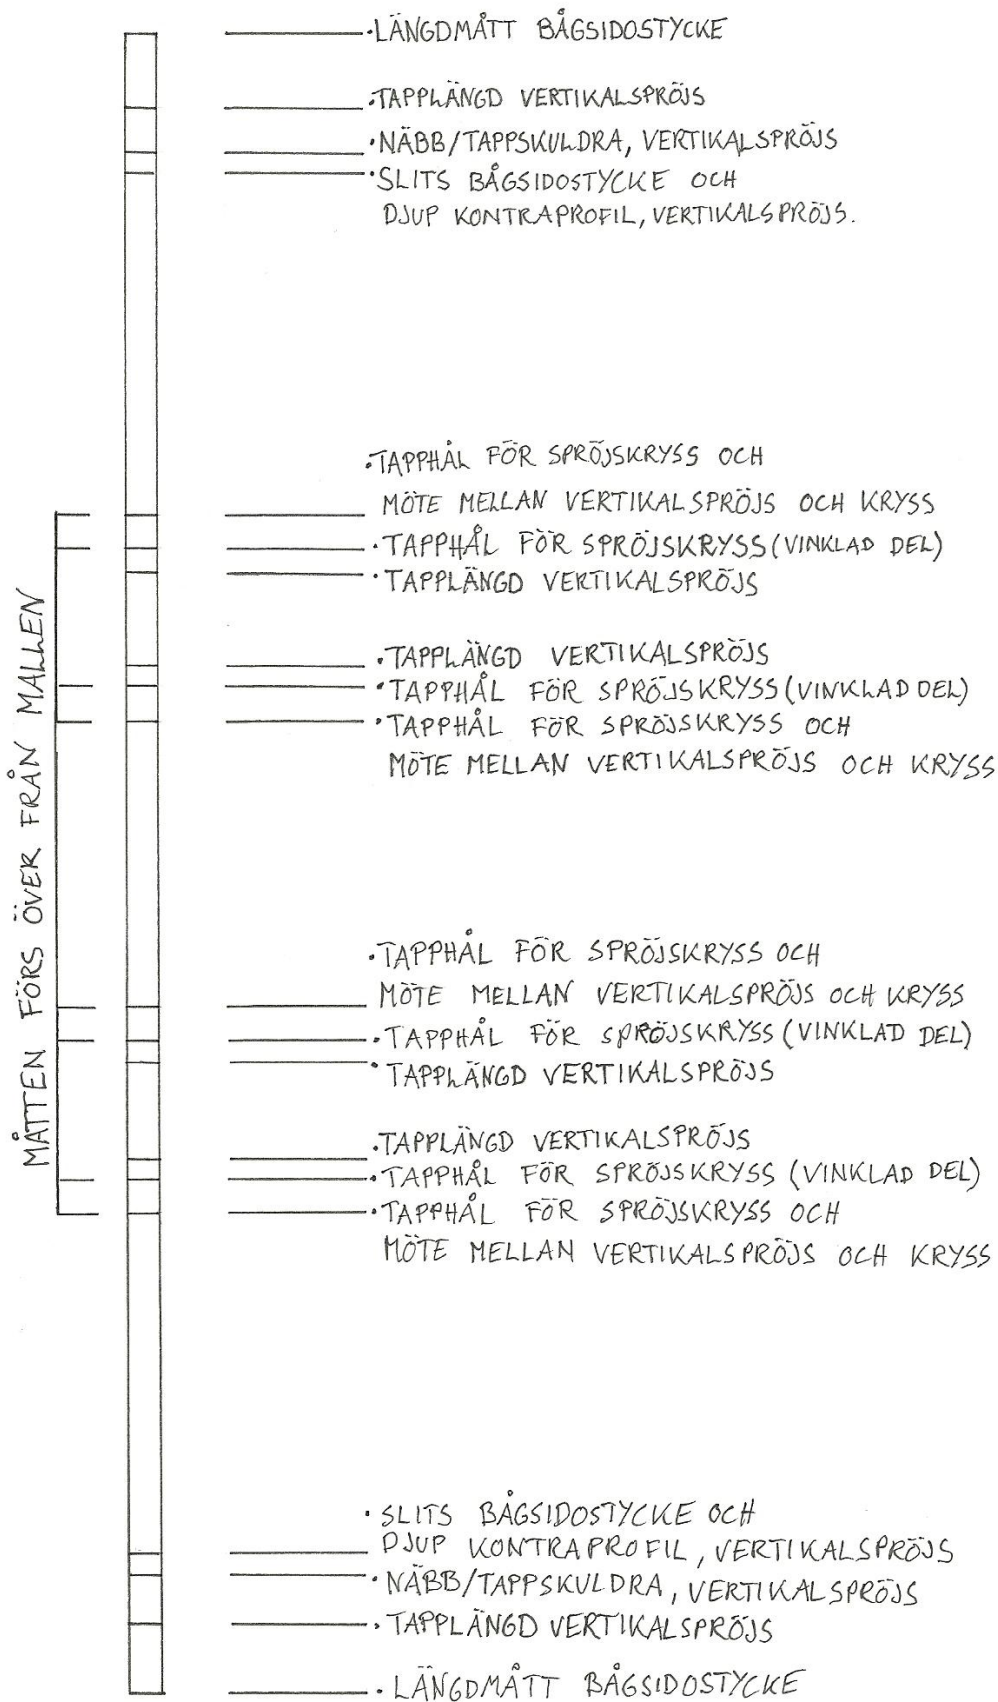 ·LÄNGDMÅTT BÅGSIDOSTYCKE
·TAPPLÄNGD VERTIKALSPRÖJS
·NÄBB/TAPPSKULDRA, VERTIKALSPRÖJS
·SLITS BÅGSIDOSTYCKE OCH
DJUP KONTRAPROFIL, VERTIKALSPRÖJS.
·TAPPHÅL FÖR SPRÖJSKRYSS OCH
MÖTE MELLAN VERTIKALSPRÖJS OCH KRYSS
·TAPPHÅL FÖR SPRÖJSKRYSS (VINKLAD DEL)
·TAPPLÄNGD VERTIKALSPRÖJS
·TAPPLÄNGD VERTIKALSPRÖJS
·TAPPHÅL FÖR SPRÖJSKRYSS (VINKLAD DEL)
·TAPPHÅL FÖR SPRÖJSKRYSS OCH
MÖTE MELLAN VERTIKALSPRÖJS OCH KRYSS
MÅTTEN FÖRS ÖVER FRÅN MALLEN
·TAPPHÅL FÖR SPRÖJSKRYSS OCH
MÖTE MELLAN VERTIKALSPRÖJS OCH KRYSS
·TAPPHÅL FÖR SPRÖJSKRYSS (VINKLAD DEL)
·TAPPLÄNGD VERTIKALSPRÖJS
·TAPPLÄNGD VERTIKALSPRÖJS
·TAPPHÅL FÖR SPRÖJSKRYSS (VINKLAD DEL)
·TAPPHÅL FÖR SPRÖJSKRYSS OCH
MÖTE MELLAN VERTIKALSPRÖJS OCH KRYSS
·SLITS BÅGSIDOSTYCKE OCH
DJUP KONTRAPROFIL, VERTIKALSPRÖJS
·NÄBB/TAPPSKULDRA, VERTIKALSPRÖJS
·TAPPLÄNGD VERTIKALSPRÖJS
·LÄNGDMÅTT BÅGSIDOSTYCKE